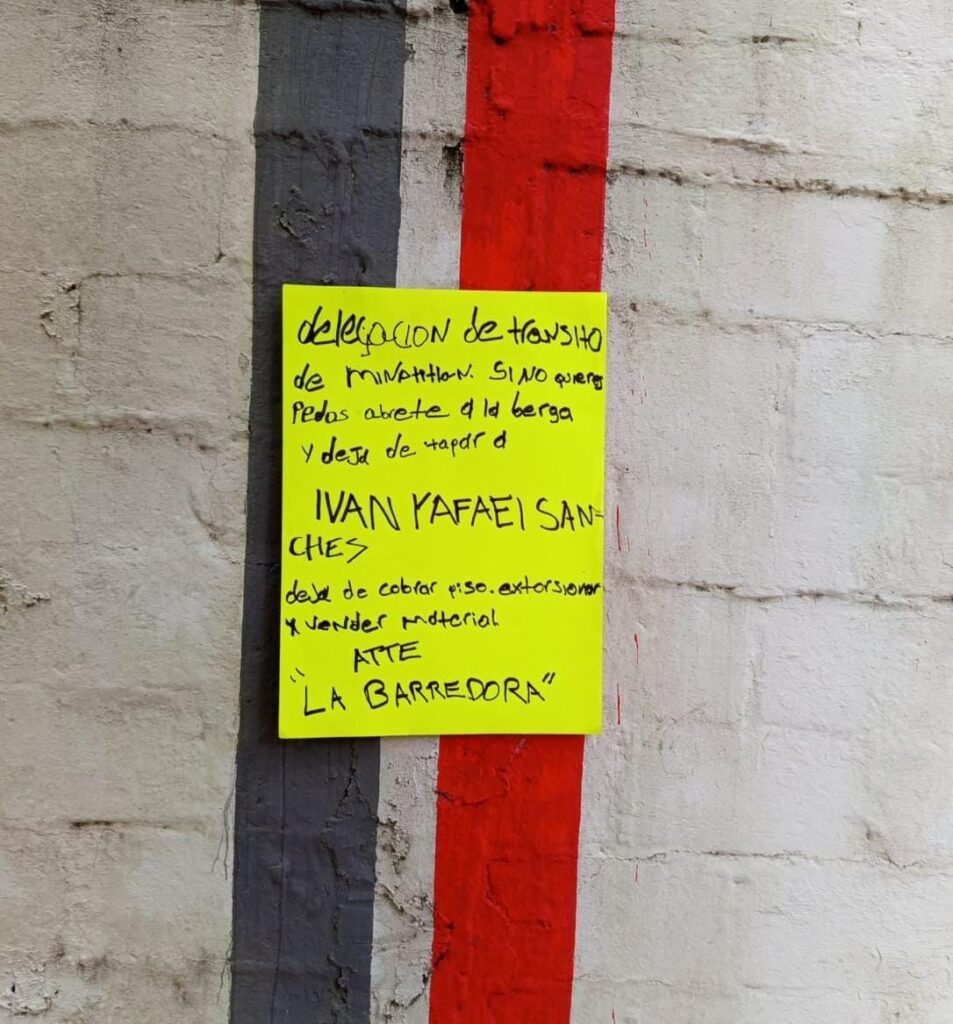 delegacion de transito
de minatitlan. SI NO quieres
Pedos abrete a la berga
y deja de tapar a
IVAN YAFAEl SAN-
CHES
deja de cobrar piso. extorsionar
y vender material
ATTE
"LA BARREDORA"